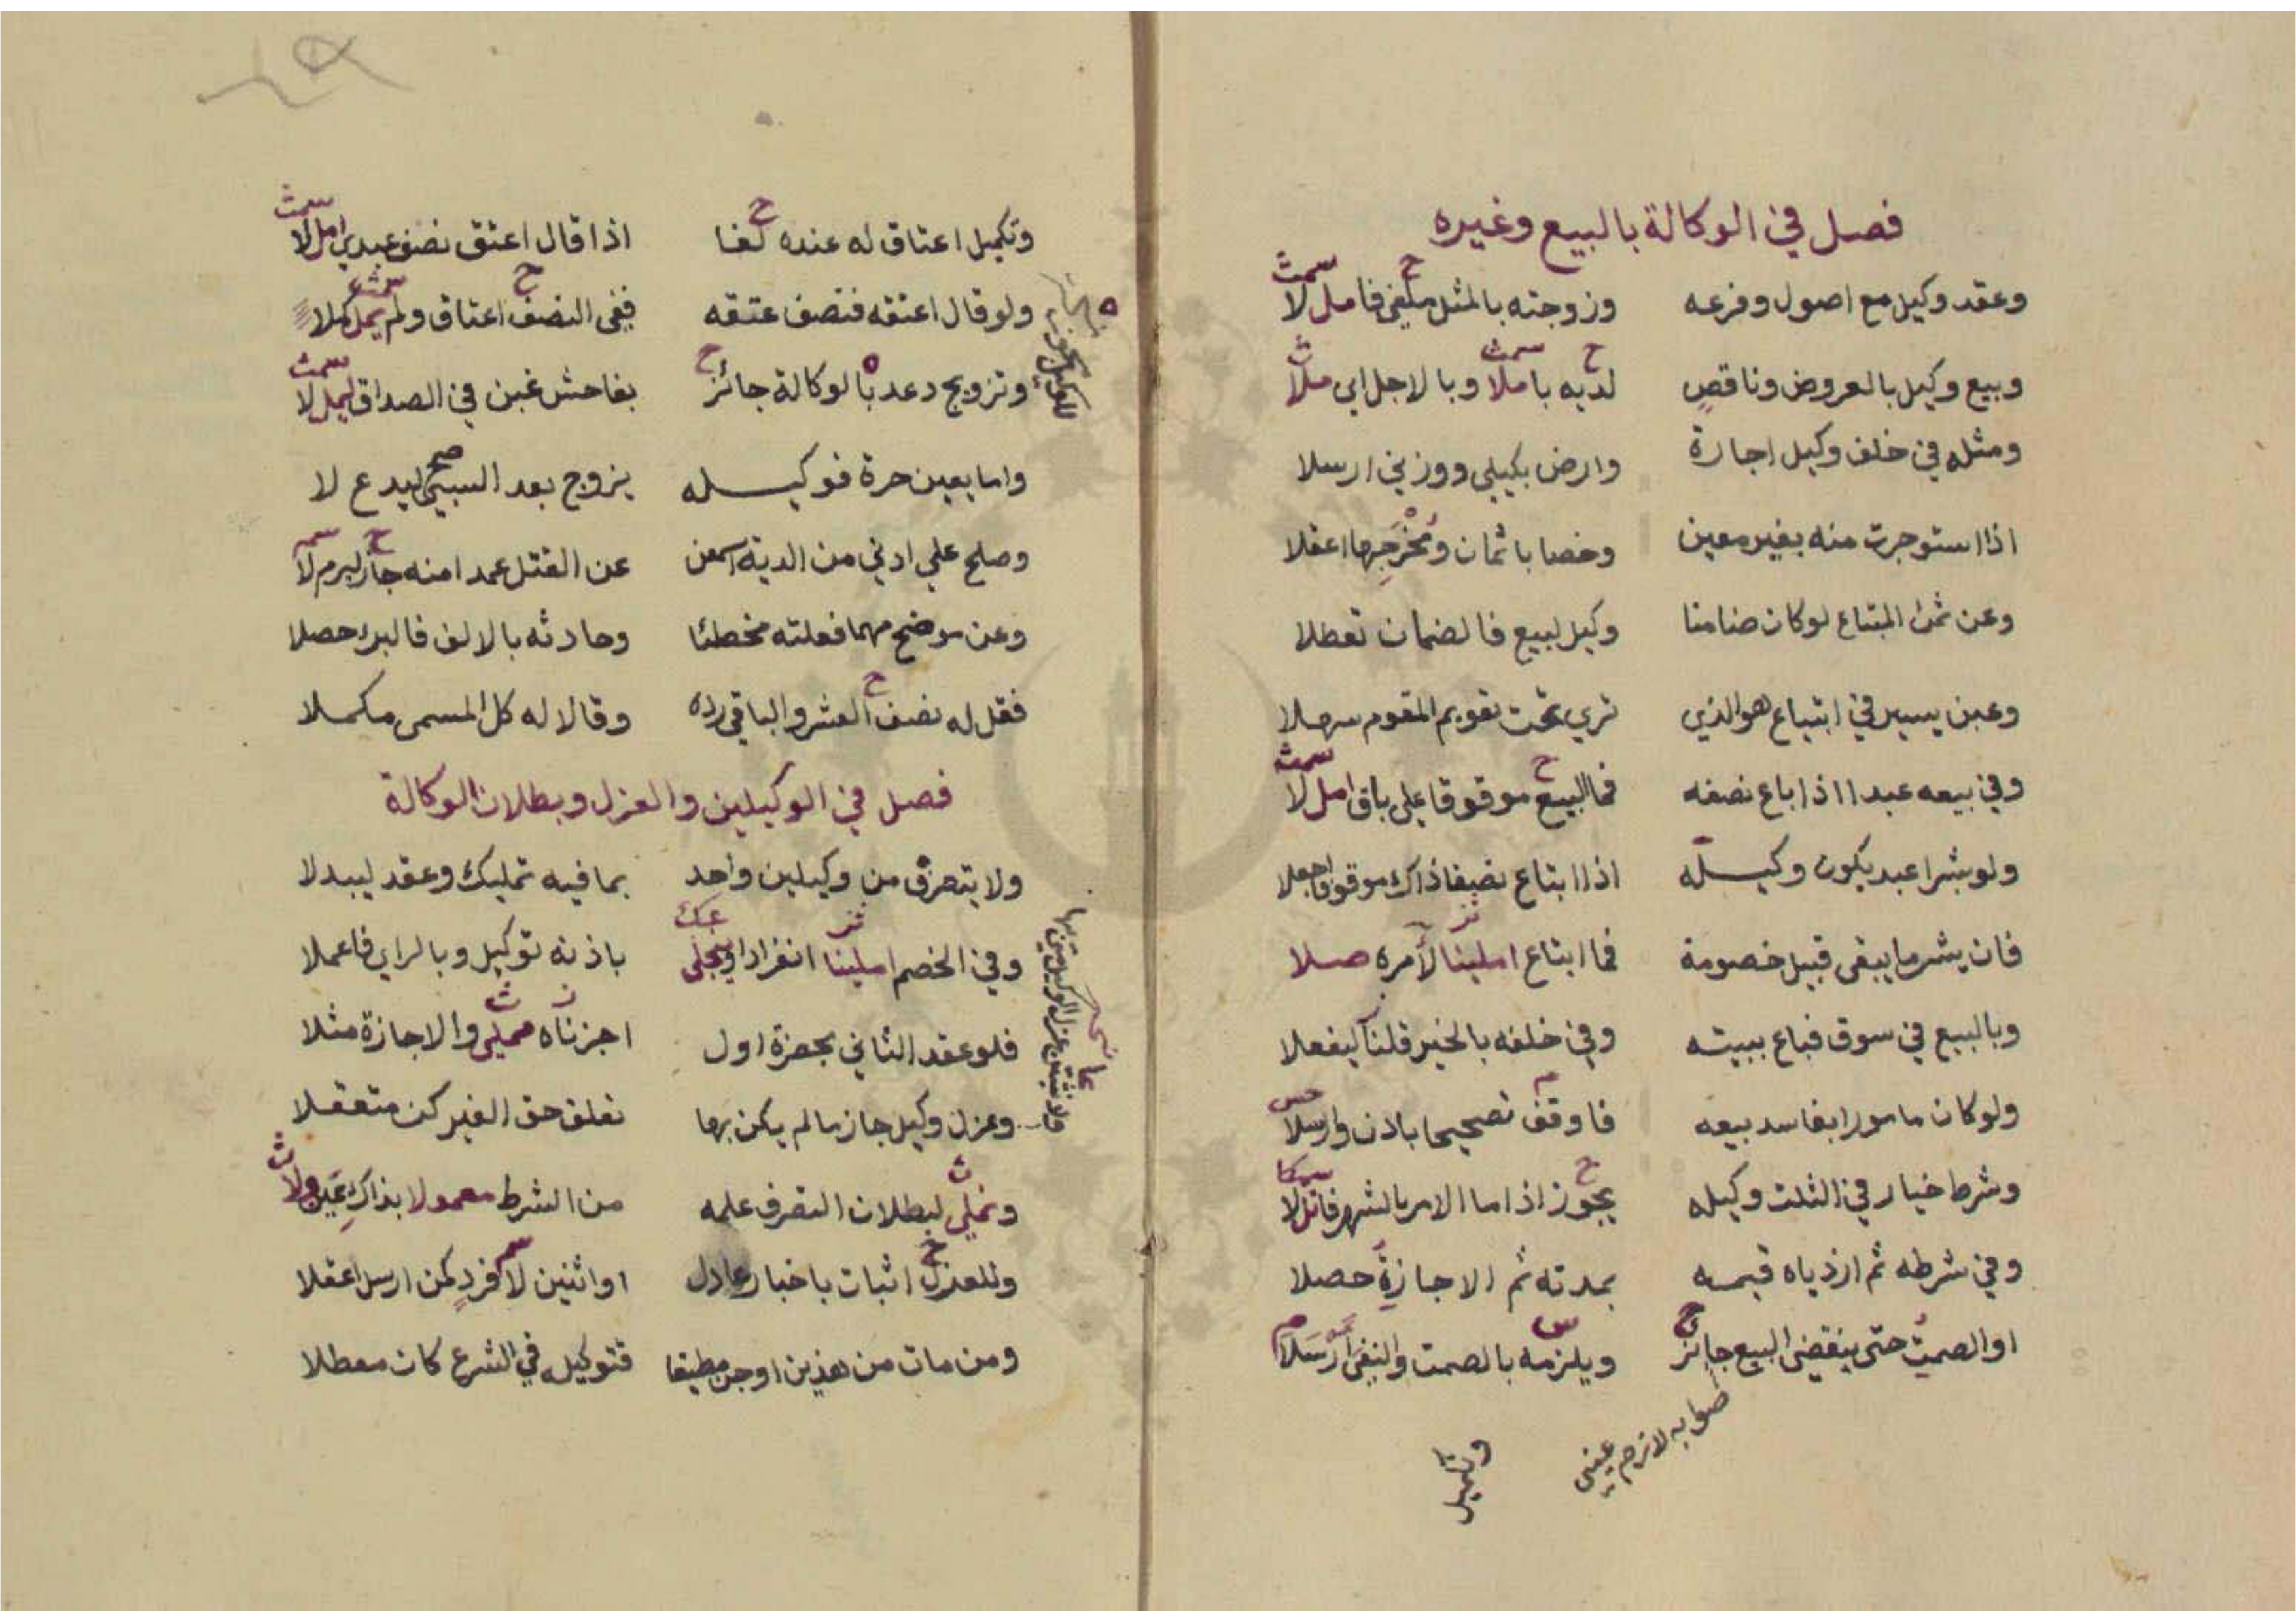 فصل في الوكالة بالبيع وغيره
وعقد وكيل مع اصول وفرعه وزوجته بالمثل ملغى فامل لا
وبيع وكيل بالعروض وناقص لديه باملا وبالاجل اي ملا
ومثله في خلف وكيل اجارة وارض بكيلي ووزني ارسلا
اذا استوجرت منه بغير معين وخصا باثمان ومخرجها اعقلا
وعن ثمن المبتاع لوكان ضامنا وكيل لبيع فالضمان تعطلا
وغبن يسير في ابتياع هو الذي تري تحت تقويم المقوم سهلا
وفي بيعه عبدا اذا باع نصفه فما البيع موقوفا على باق امل لا
ولو بشرا عبد يكون وكيله اذا ابتاع نصفا ذاك موقوفا اجعلا
فان يشر ما يبقى قبيل خصومة فما ابتاع املينا لأمره صلا
وبالبيع في سوق فباع ببيته وفي خلفه بالخير قلنا ليفعلا
ولوكان مامورا بفاسد بيعه فاوقف تصحيحا باذن وارسلا
وشرط خيار في الثلث وكيله يجوز اذا ما الامر بالشهر فاتل لا
وفي شرطه ثم ازدياه قيمه بمدته ثم الاجازة حصلا
او الصمت حتى ينقضي البيع جائز ويلزمه بالصمت والنفي ارسلا
صوابه لازم عيني
وتكميل
وتكميل اعتاق له عنده لغا اذا قال اعتق نصف عبدي امل لا
ولو قال اعتقه فنصف عتقه ففي النصف اعتاق ولم يمل كملا
وتزويج دعد بالوكالة جائز بفاحش غبن في الصداق ليمل لا
واما بعين حرة فوكيله يزوج بعد السبي ليدع لا
صح
وصلح علي ادني من الدية اسمعن عن القتل عمدا منه جاز لبرم لا
وعن موضح مهما فعلته مخطئا وحادثه بالالف فالبرء حصلا
فقل له نصف العشر والباقي رده وقالا له كل المسمى مكملا
فصل في الوكيلين والعزل وبطلان الوكالة
ولا يتصرف من وكيلين واحد بما فيه تمليك وعقد ليبدلا
وفي الخصم املينا انفرادا باذنه توكيل وبالراي فاعملا
فلو عقد الثاني بحضرة اول اجزناه مملي والاجازة مثلا
وعزل وكيل جاز مالم يكن بها تعلق حق الغير كن متعقلا
ونملي لبطلان التصرف علمه من الشرط معمولا بذاك
وللعزل اثبات باخبار عادل او اثنين لا فرد كمن ارسل اعقلا
ومن مات من هذين او جن مطبقا فتوكيله في الشرع كان معطلا